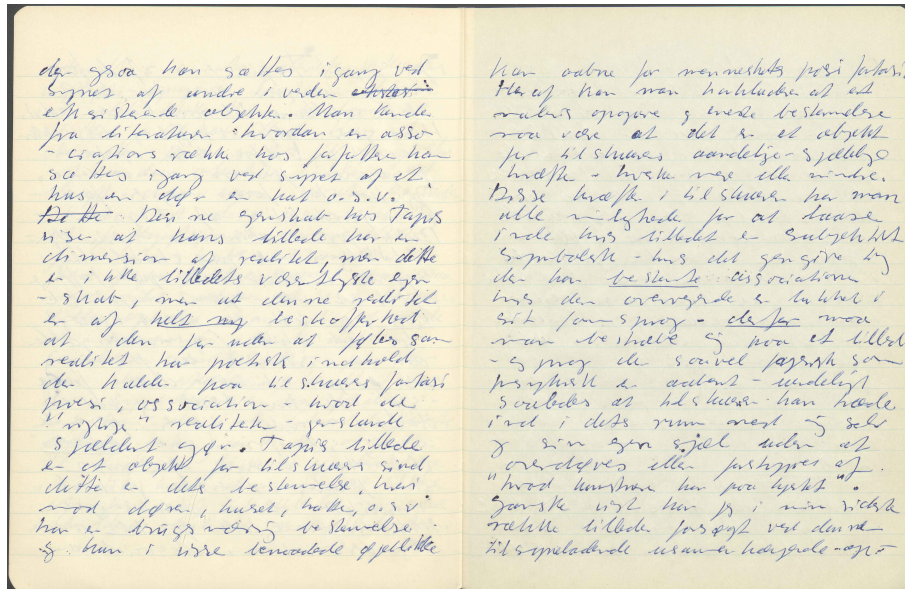 der ogsaa kan sættes igang ved
synet af andre i verden
eksisterende objekter. Man kender
fra literaturen hvordan en asso
-ciations række hos forfatteren kan
sættes igang ved synet af et
hus en dør en hat o.s.v.
Dette - Denne egenskab hos Tapies
viser at hans billede har en
dimension af realitet, men dette
er ikke billedets væsentligste egen
-skab, men at denne realitet
er af helt ny beskaffenhed
at den for uden at føles som
realitet har poetisk indhold
der kalder paa tilskuerens fantasi
poesi, association - hvad de
"rigtige" realiteter - genstande
sjældent gør. Tapies billede
er et objekt for tilskuerens sind
dette er dets bestemmelse, hvori
mod døren, huset, hatten, o.s.v.
har en brugsmæssig bestemmelse -
og kan i visse benaadede øjeblikke
kan aabne for menneskets poesi fantasi
Heraf kan man konkludere at et
maleris opgave og eneste bestemmelse
maa være at det er et objekt
for tilskuerens aandelige - sjælelige
kræfter - hverken mere eller mindre.
Disse kræfter i tilskueren har man
alle muligheder for at laase
inde hvis billedet er subjektivt
symbolsk - hvis det gengiver ting
der har bestemte associationer
hvis den overvejende er lukket i
sit formsprog - derfor maa
man bestræbe sig paa et billed
-sprog der saavel fysisk som
psykisk er aabent - uendeligt
saaledes at tilskueren kan træde
ind i dets rum med sig selv
og sin egen sjæl uden at
overdøves eller forstyrres af
"hvad kunstneren har paa hjertet".
Ganske vist har jeg i min sidste
række billeder forsøgt ved denne
tilsyneladende